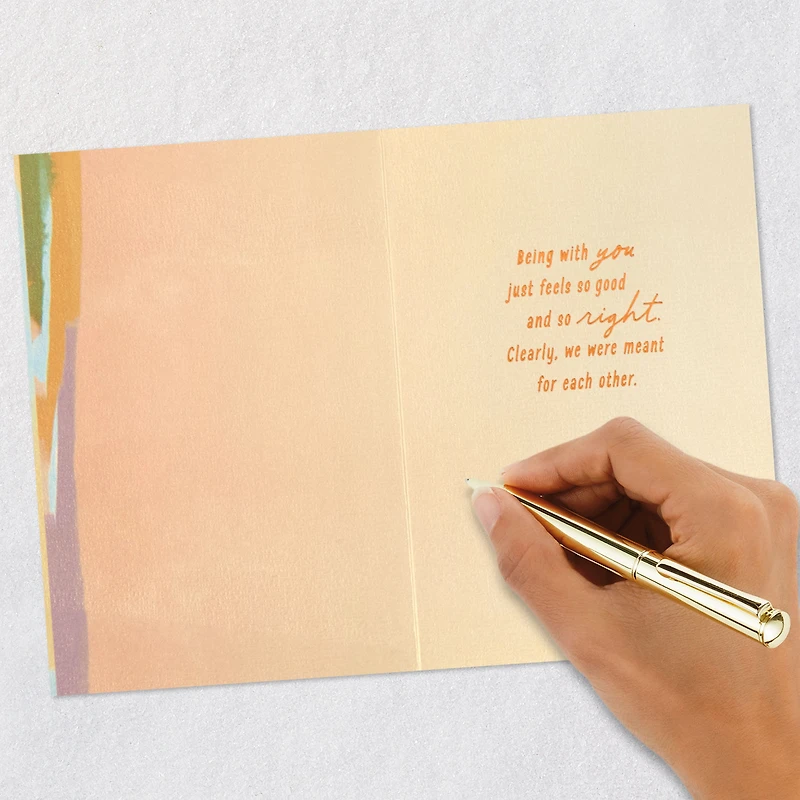 Being with you
just feels so good
and so right.
Clearly, we were meant
for each other.